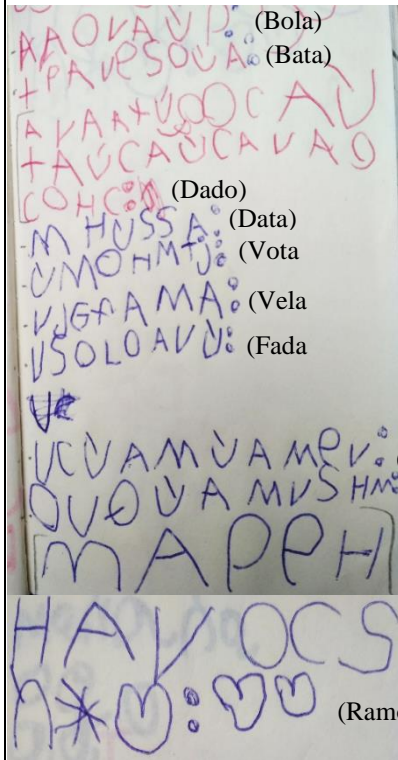 AAOVAUP: (Bola)
+PAVESOVA: (Bata)
AVAA+UOOCAU
+AUCAUCAVAO
COHC: (Dado)
MHUSSA: (Data)
UMOHMTJ: (Vota
VJGAAMA: (Vela
VSOLOAVU: (Fada
UCUAMUAMPV:
OUOUAMVSHM
[MAPPH]
HAVOCS
(Ramo